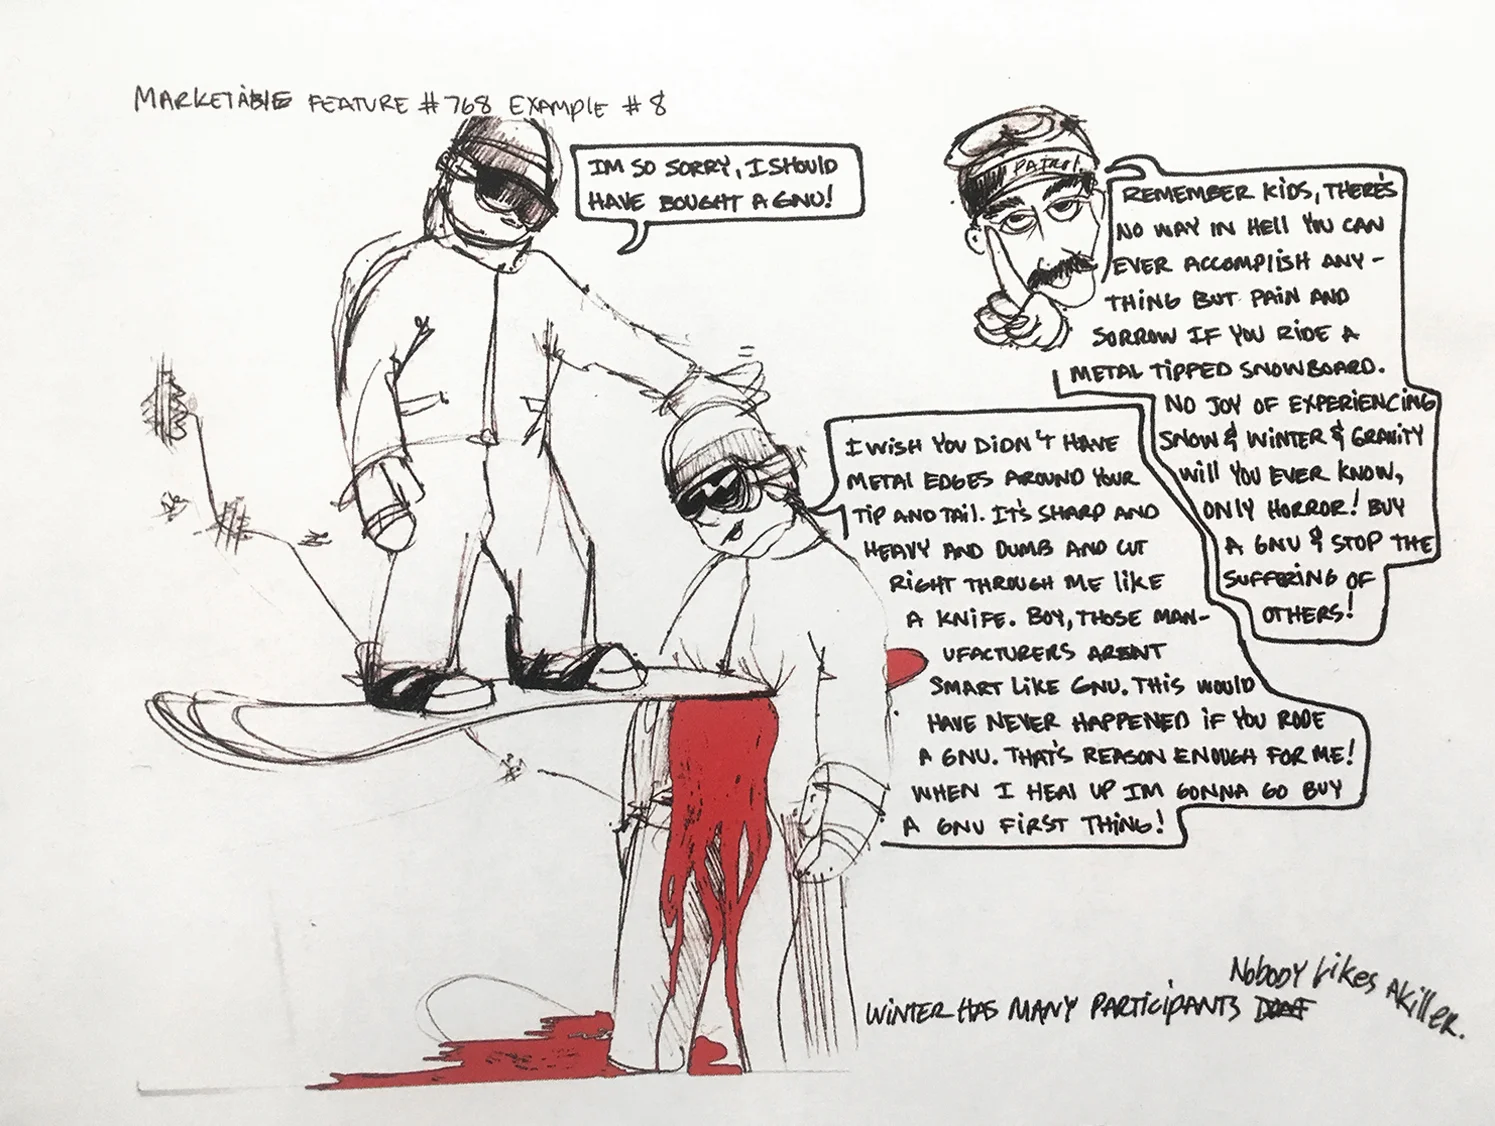 MARKETABLE FEATURE #768 EXAMPLE #8
IM SO SORRY, I SHOULD
HAVE BOUGHT A GNU!
PATROL
REMEMBER KIDS, THERE'S
NO WAY IN HELL YOU CAN
EVER ACCOMPLISH ANY-
THING BUT PAIN AND
SORROW IF YOU RIDE A
METAL TIPPED SNOWBOARD.
NO JOY OF EXPERIENCING
SNOW & WINTER & GRAVITY
WILL YOU EVER KNOW,
ONLY HORROR! BUY
A GNU & STOP THE
SUFFERING OF
OTHERS!
I WISH YOU DIDN'T HAVE
METAL EDGES AROUND YOUR
TIP AND TAIL. IT'S SHARP AND
HEAVY AND DUMB AND CUT
RIGHT THROUGH ME LIKE
A KNIFE. BOY, THOSE MAN-
UFACTURERS ARENT
SMART LIKE GNU. THIS WOULD
HAVE NEVER HAPPENED IF YOU RODE
A GNU. THAT'S REASON ENOUGH FOR ME!
WHEN I HEAL UP IM GONNA GO BUY
A GNU FIRST THING!
WINTER HAS MANY PARTICIPANTS
NOBODY LIKES A KILLER.